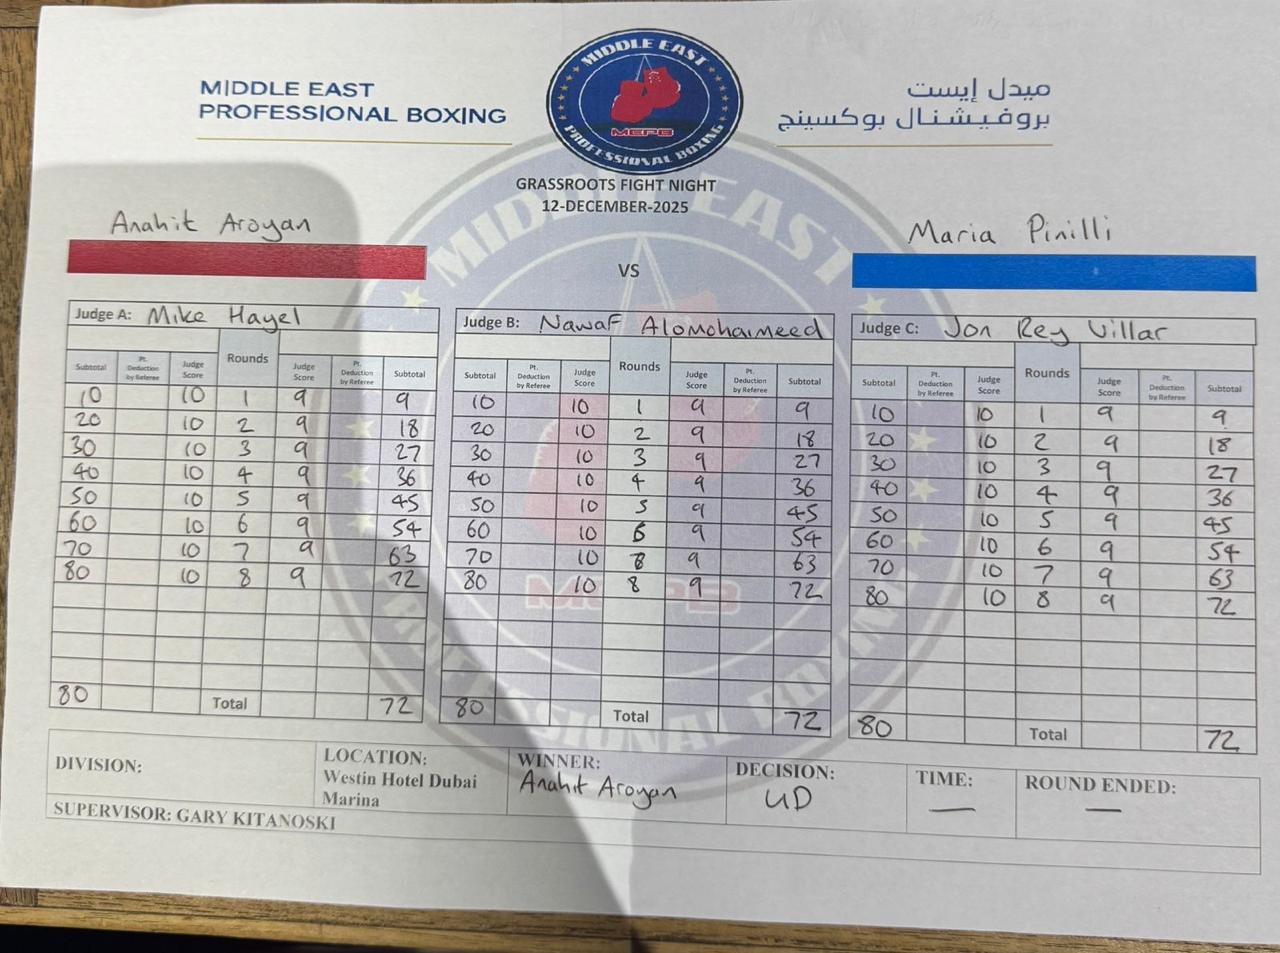 MIDDLE EAST
PROFESSIONAL BOXING
MIDDLE EAST
MEPB
PROFESSIONAL BOXING
ميدل إيست
بروفيشنال بوكسينج
GRASSROOTS FIGHT NIGHT
12-DECEMBER-2025
Anahit Aroyan
VS
Maria Pinilli
Judge A: Mike Hayel
Subtotal Pt. Deduction by Referee Judge Score Rounds Judge Score Pt. Deduction by Referee Subtotal
10 10 1 9 9
20 10 2 9 18
30 10 3 9 27
40 10 4 9 36
50 10 5 9 45
60 10 6 9 54
70 10 7 9 63
80 10 8 9 72
80 Total 72
Judge B: Nawaf Alomohaimeed
Subtotal Pt. Deduction by Referee Judge Score Rounds Judge Score Pt. Deduction by Referee Subtotal
10 10 1 9 9
20 10 2 9 18
30 10 3 9 27
40 10 4 9 36
50 10 5 9 45
60 10 6 9 54
70 10 8 9 63
80 10 8 9 72
80 Total 72
Judge C: Jon Rey Villar
Subtotal Pt. Deduction by Referee Judge Score Rounds Judge Score Pt. Deduction by Referee Subtotal
10 10 1 9 9
20 10 2 9 18
30 10 3 9 27
40 10 4 9 36
50 10 5 9 45
60 10 6 9 54
70 10 7 9 63
80 10 8 9 72
80 Total 72
MIDDLE EAST
MEPB
PROFESSIONAL BOXING
DIVISION:
LOCATION:
Westin Hotel Dubai
Marina
WINNER:
Anahit Aroyan
DECISION:
UD
TIME:
—
ROUND ENDED:
—
SUPERVISOR: GARY KITANOSKI